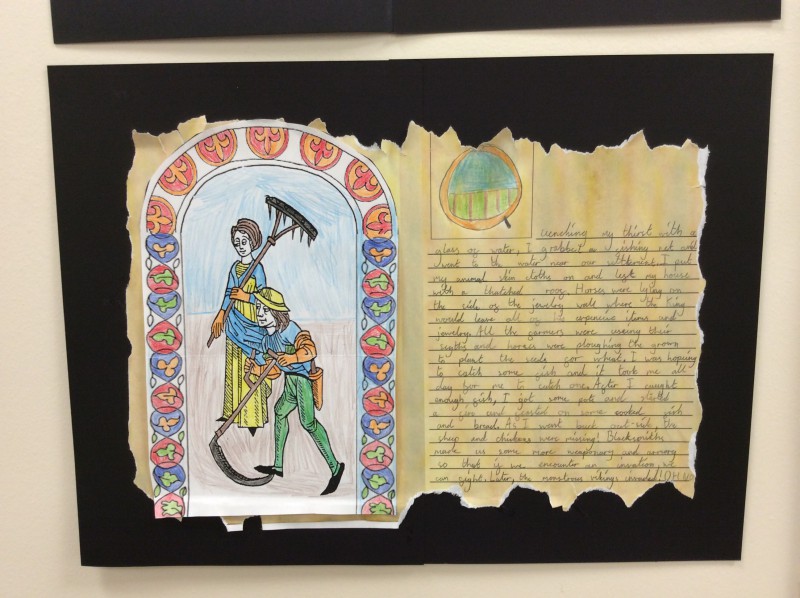 uenching my thirst with a
glass of water, I grabbed a fishing net and
went to the water near our settlement. I put
my animal skin cloths on and left my house
with a thatched roof. Horses were lying on
the side of the jewelry wall where the King
would leave all of is expencive items and
jewelry. All the farmers were useing their
scyths and horses were ploughing the grown
to plant the seeds for wheat. I was hopeing
to catch some fish and it took me all
day for me to catch one. After I caught
enough fish, I got some and started
a fire and feasted on some cooked fish
and bread. As I went back out-side, the
sheep and chickens were missing! Blacksmiths
us some more weaponary and armory
so that if we encounter an invation, we
can fight. Later, the monstrous vikings invaded!